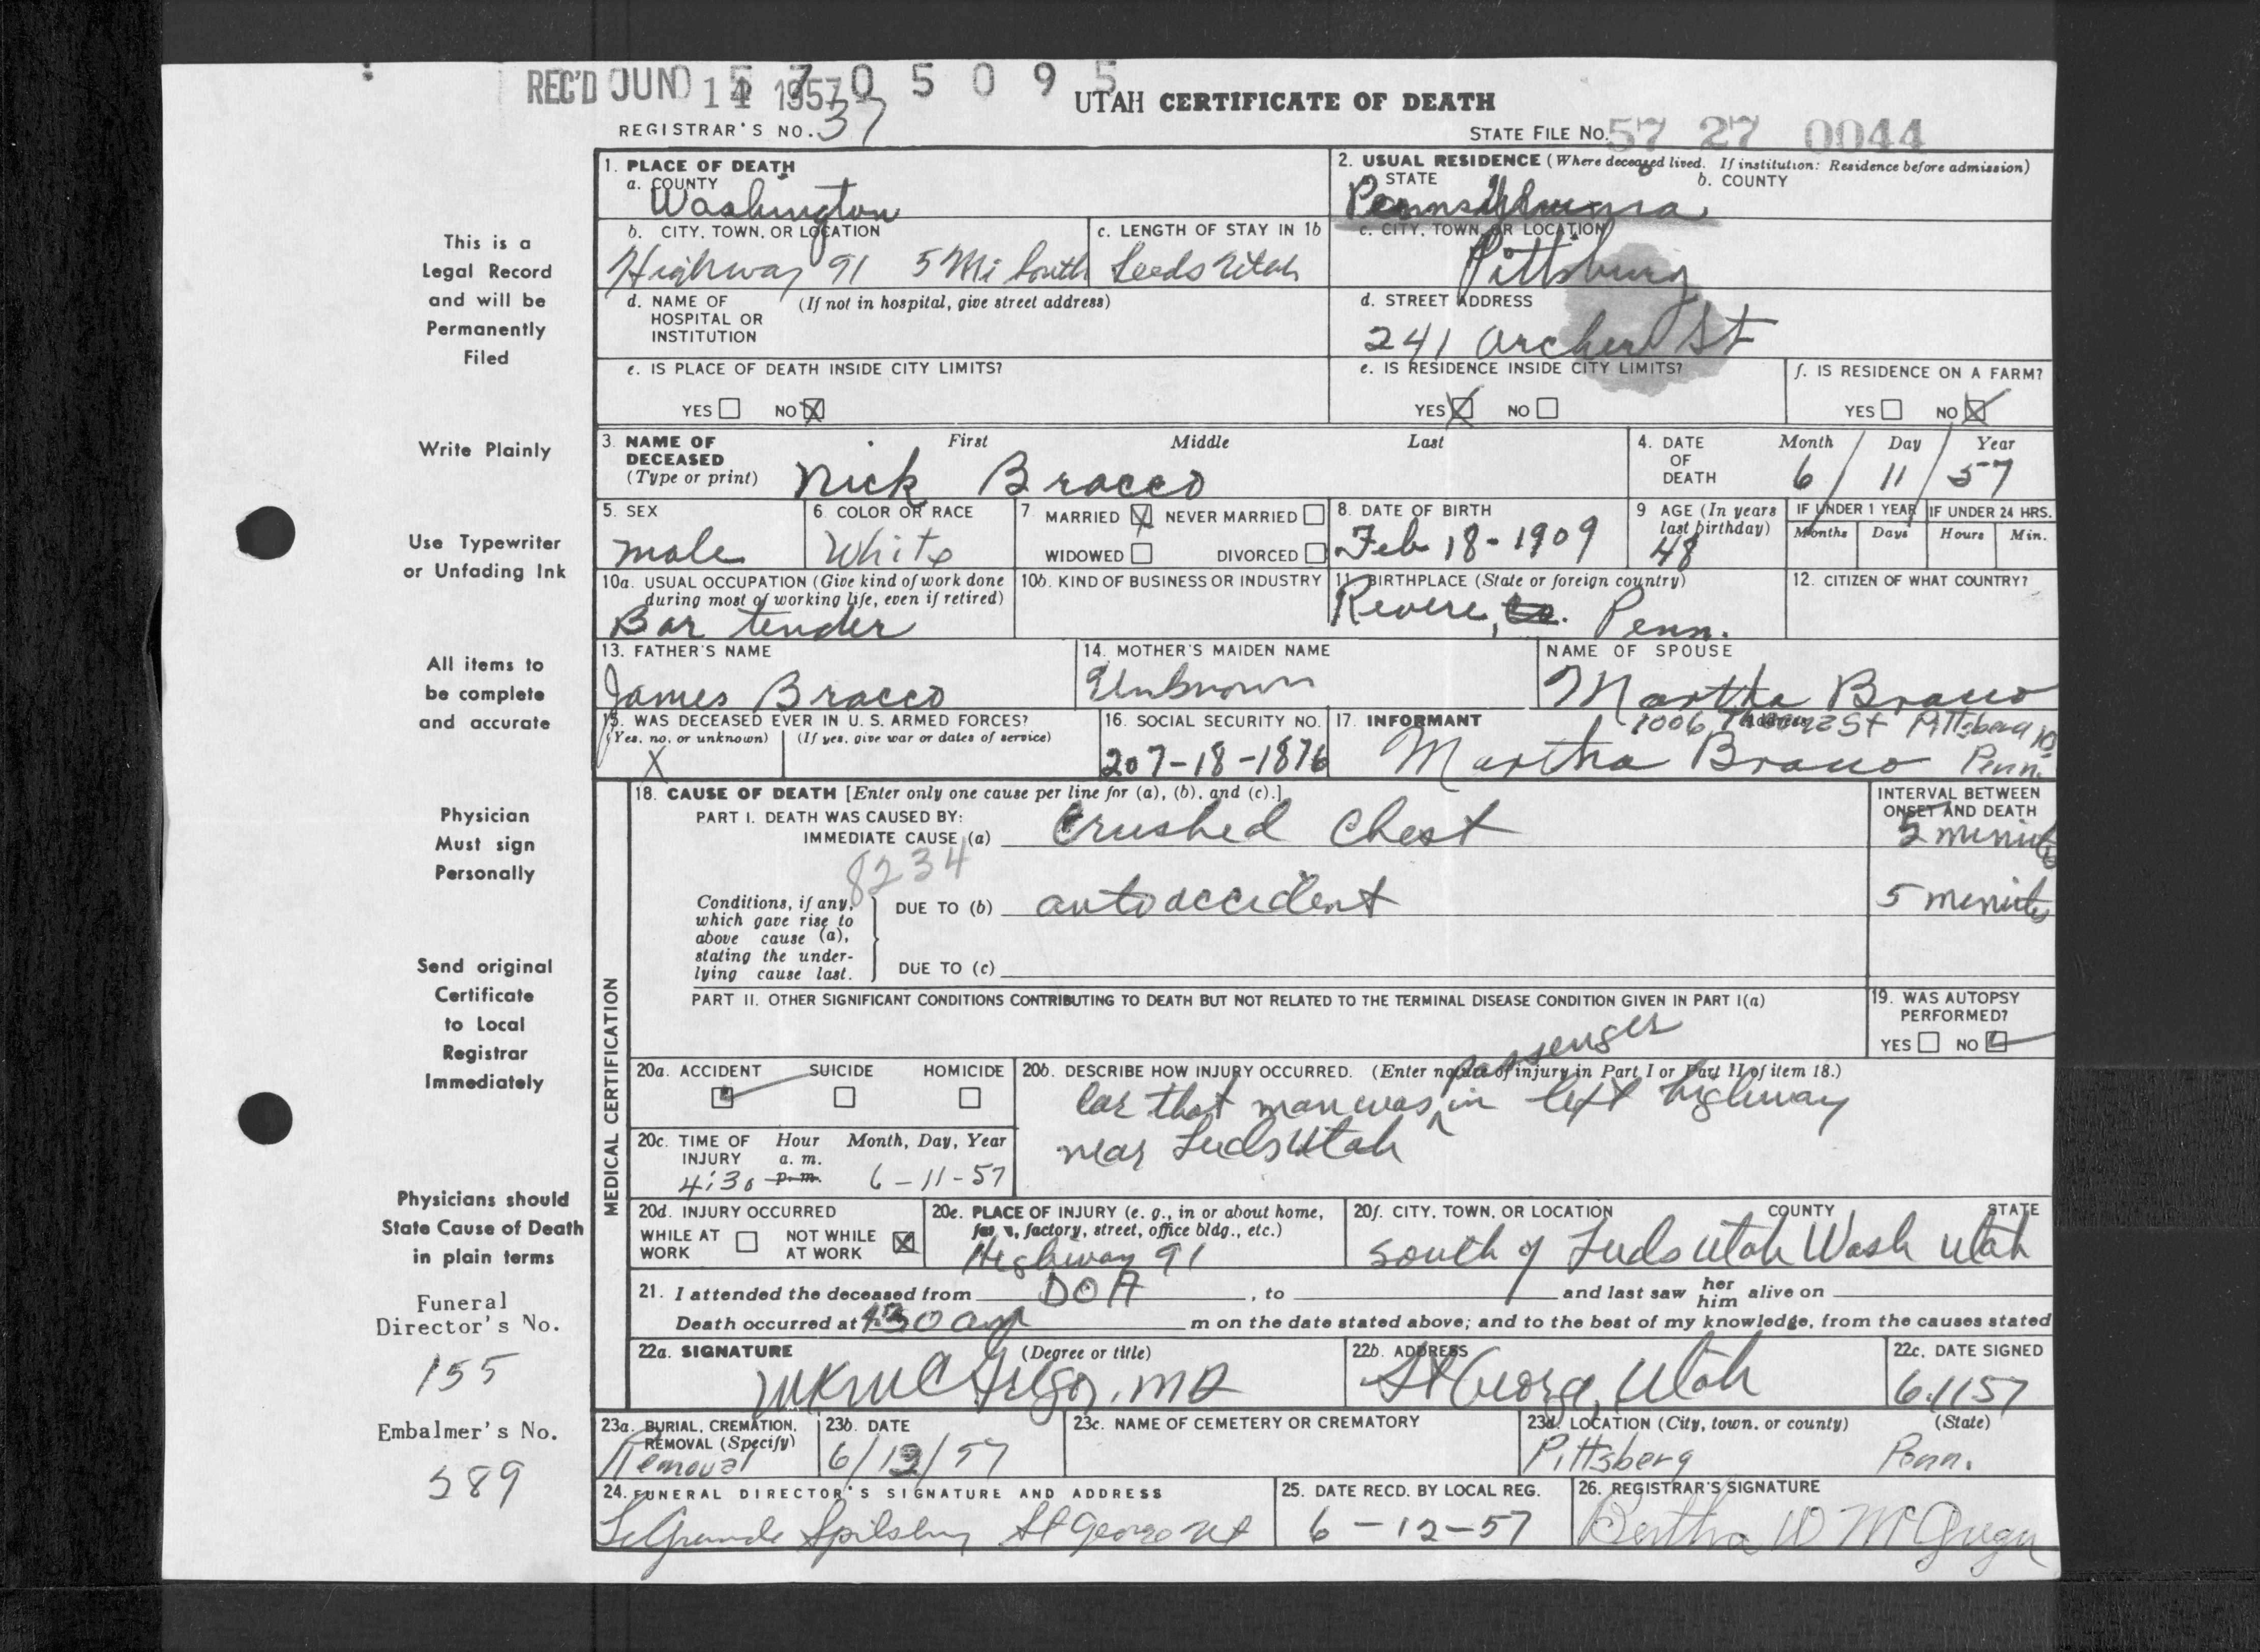 REC'D JUN 14 1957 0 5 0 9 5
UTAH CERTIFICATE OF DEATH
REGISTRAR'S NO. 37
STATE FILE No. 57 27 0044
This is a
Legal Record
and will be
Permanently
Filed
Write Plainly
Use Typewriter
or Unfading Ink
All items to
be complete
and accurate
Physician
Must sign
Personally
Send original
Certificate
to Local
Registrar
Immediately
Physicians should
State Cause of Death
in plain terms
Funeral
Director's No.
155
Embalmer's No.
589
1. PLACE OF DEATH
a. COUNTY
Washington
2. USUAL RESIDENCE (Where deceased lived. If institution: Residence before admission)
a. STATE b. COUNTY
Pennsylvania
b. CITY, TOWN, OR LOCATION
c. LENGTH OF STAY IN 1b
Highway 91 5 Mi South Leeds Utah
c. CITY, TOWN, OR LOCATION
Pittsburg
d. NAME OF (If not in hospital, give street address)
HOSPITAL OR
INSTITUTION
d. STREET ADDRESS
241 Archer St
e. IS PLACE OF DEATH INSIDE CITY LIMITS?
YES NO X
e. IS RESIDENCE INSIDE CITY LIMITS?
YES X NO
f. IS RESIDENCE ON A FARM?
YES NO X
3. NAME OF First Middle Last
DECEASED
(Type or print) Nick Bracco
4. DATE Month Day Year
OF
DEATH 6 / 11 / 57
5. SEX
male
6 COLOR OR RACE
White
7. MARRIED X NEVER MARRIED
WIDOWED DIVORCED
8. DATE OF BIRTH
Feb 18-1909
9 AGE (In years
last birthday)
48
IF UNDER 1 YEAR IF UNDER 24 HRS.
Months Days Hours Min.
10a. USUAL OCCUPATION (Give kind of work done
during most of working life, even if retired)
Bar tender
10b. KIND OF BUSINESS OR INDUSTRY
11. BIRTHPLACE (State or foreign country)
Revere, Penn.
12. CITIZEN OF WHAT COUNTRY?
13. FATHER'S NAME
James Bracco
14. MOTHER'S MAIDEN NAME
Unknown
NAME OF SPOUSE
Martha Bracco
15. WAS DECEASED EVER IN U. S. ARMED FORCES?
(Yes, no, or unknown) (If yes, give war or dates of service)
X
16. SOCIAL SECURITY NO.
207-18-1876
17. INFORMANT Address
1006 St Pittsberg 10,
Martha Bracco Penn.
MEDICAL CERTIFICATION
18. CAUSE OF DEATH [Enter only one cause per line for (a), (b), and (c).]
PART I. DEATH WAS CAUSED BY:
IMMEDIATE CAUSE (a) Crushed Chest
INTERVAL BETWEEN
ONSET AND DEATH
5 minutes
8234
Conditions, if any,
which gave rise to
above cause (a),
stating the under-
lying cause last.
DUE TO (b) auto accident
5 minutes
DUE TO (c)
PART II. OTHER SIGNIFICANT CONDITIONS CONTRIBUTING TO DEATH BUT NOT RELATED TO THE TERMINAL DISEASE CONDITION GIVEN IN PART I(a)
19. WAS AUTOPSY
PERFORMED?
YES NO
20a. ACCIDENT SUICIDE HOMICIDE
20b. DESCRIBE HOW INJURY OCCURRED. (Enter nature of injury in Part I or Part II of item 18.)
passenger
Car that man was in left highway
near Leeds Utah
20c. TIME OF Hour Month, Day, Year
INJURY a. m.
4:30 p. m. 6-11-57
20d. INJURY OCCURRED
WHILE AT WORK NOT WHILE AT WORK X
20e. PLACE OF INJURY (e. g., in or about home,
farm, factory, street, office bldg., etc.)
Highway 91
20f. CITY, TOWN, OR LOCATION COUNTY STATE
South of Leeds Utah Wash Utah
21. I attended the deceased from DOA , to and last saw her him alive on
Death occurred at 4:30 am m on the date stated above; and to the best of my knowledge, from the causes stated
22a. SIGNATURE (Degree or title)
McGregor, MD
22b. ADDRESS
St George, Utah
22c. DATE SIGNED
6-11-57
23a. BURIAL, CREMATION,
REMOVAL (Specify)
Removal
23b. DATE
6/12/57
23c. NAME OF CEMETERY OR CREMATORY
23d. LOCATION (City, town, or county) (State)
Pittsberg Penn.
24. FUNERAL DIRECTOR'S SIGNATURE AND ADDRESS
LeGrande Spilsbury St George Ut
25. DATE RECD. BY LOCAL REG.
6-12-57
26. REGISTRAR'S SIGNATURE
Bertha W McGregor